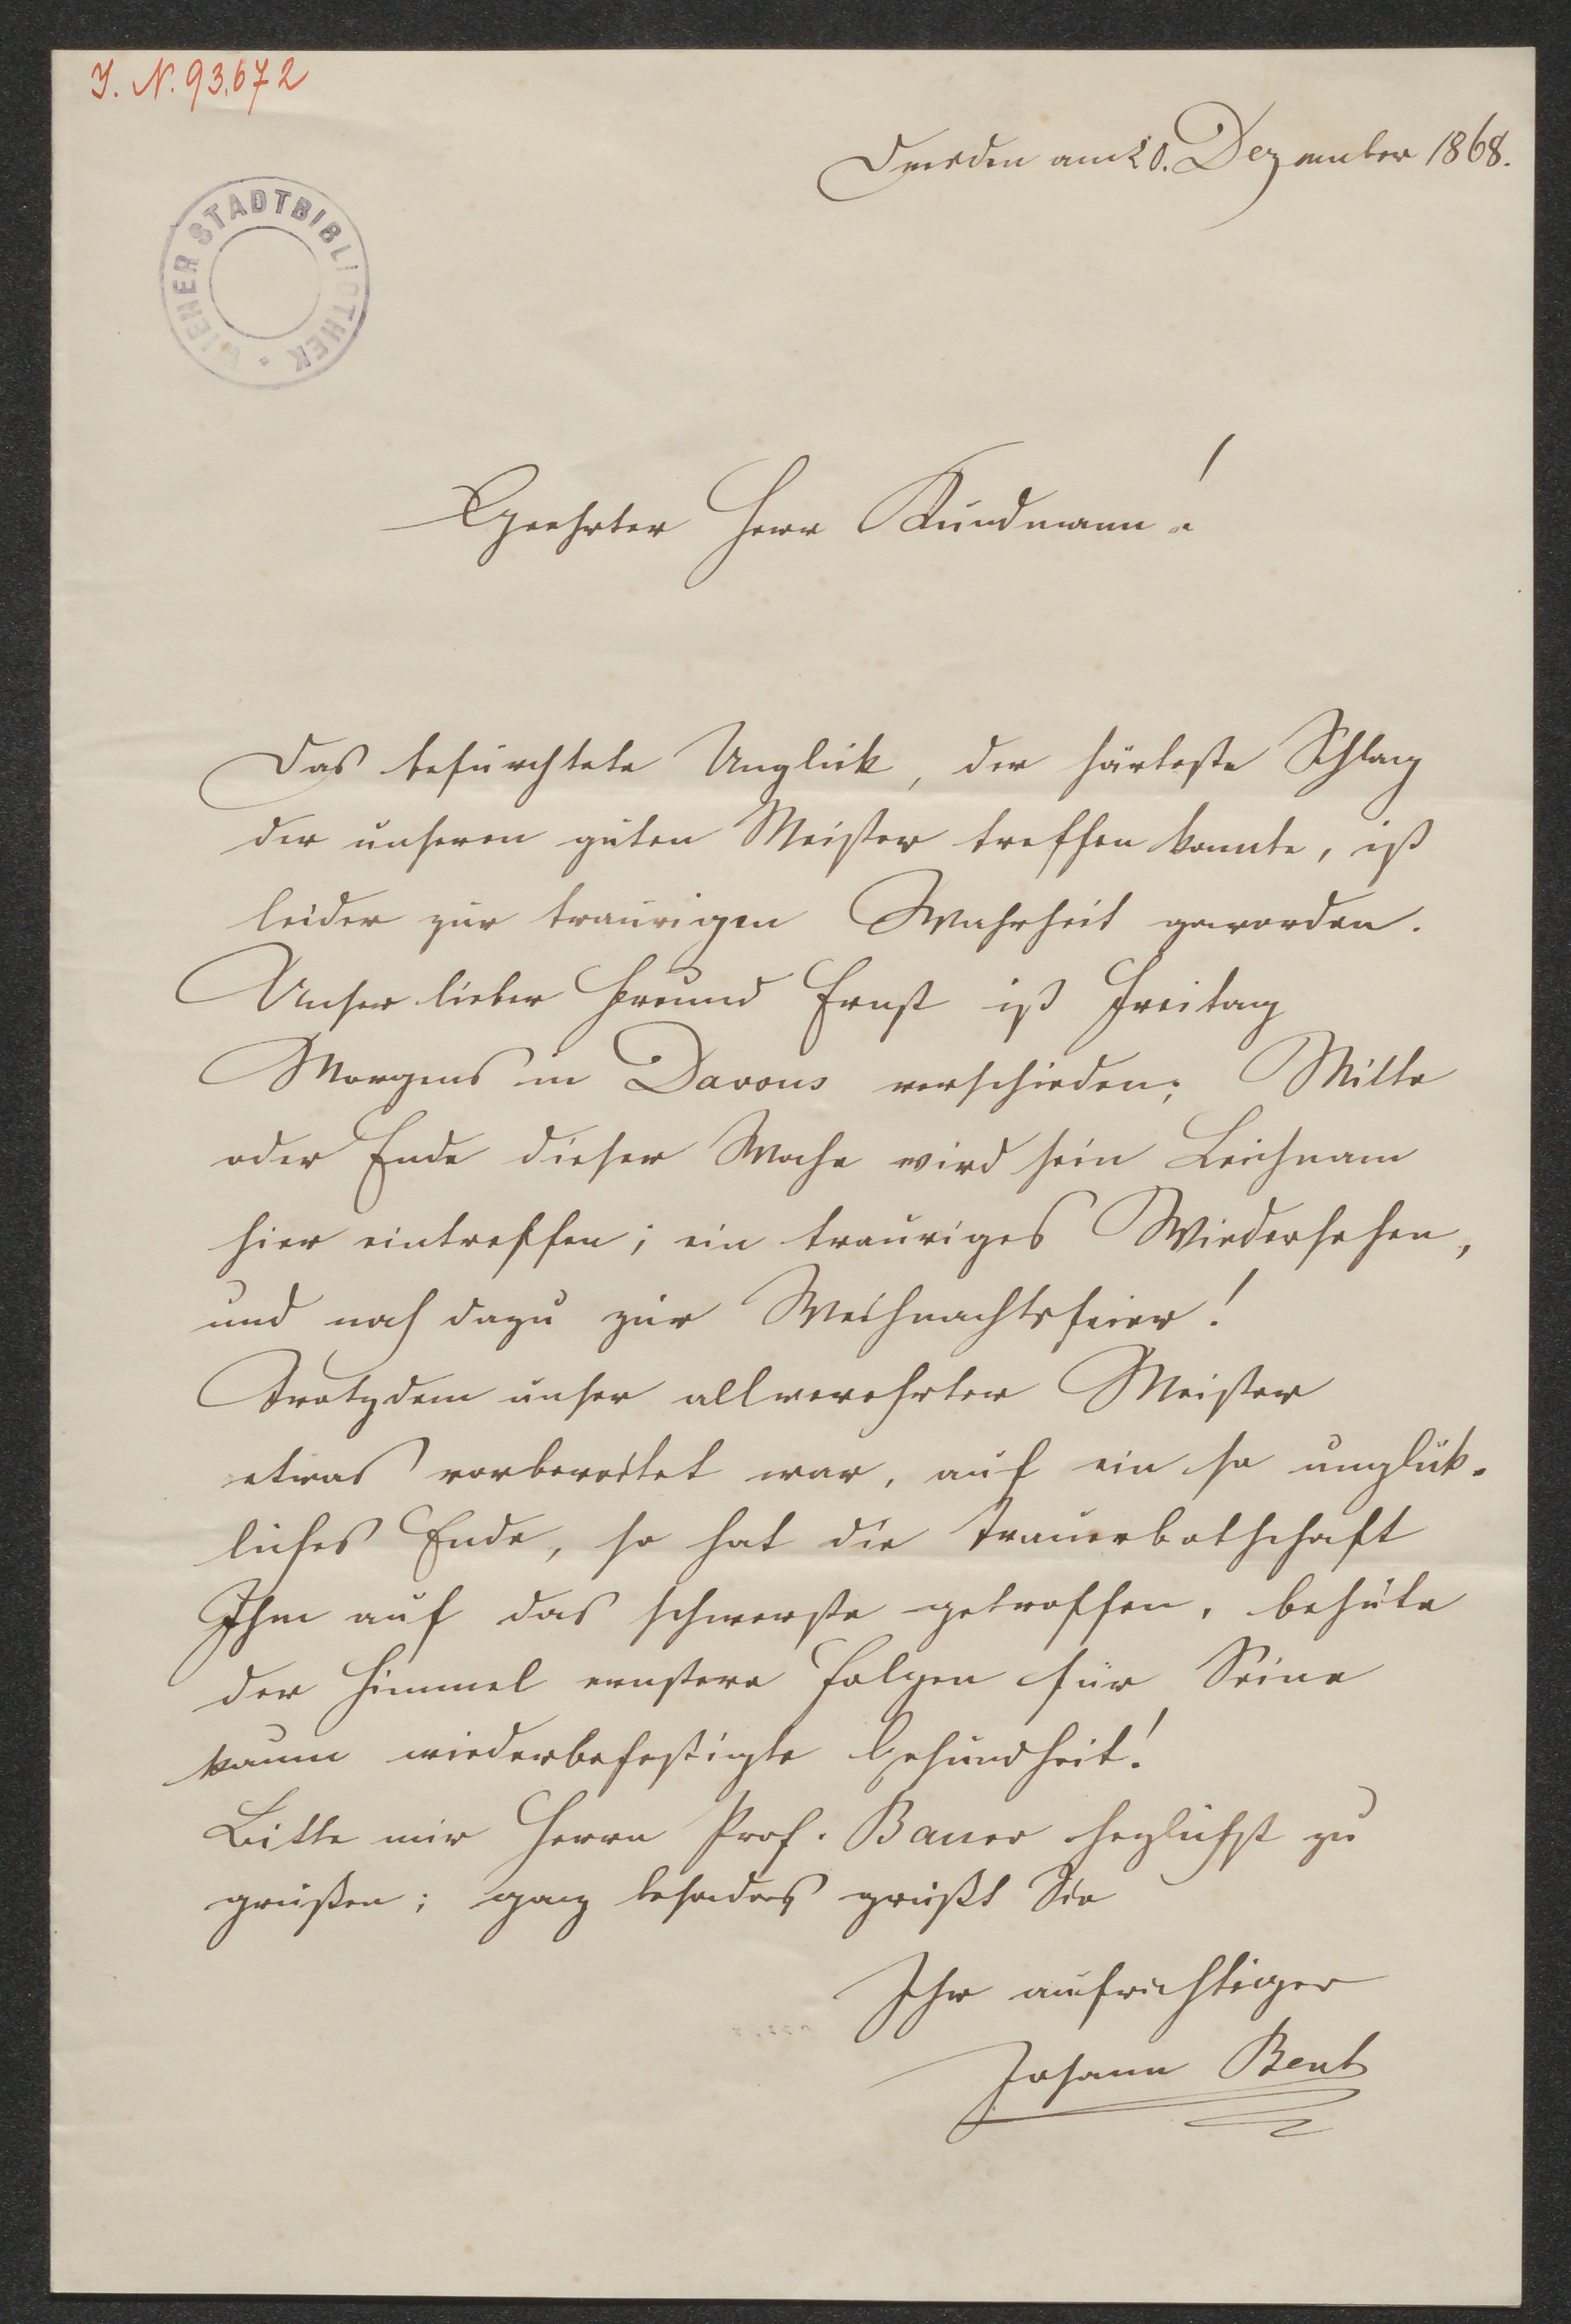 J. N. 93.672
Dresden am 20. Dezember 1868.
WIENER STADTBIBLIOTHEK
Geehrter Herr Kundmann!
Das befürchtete Unglück, der härteste Schlag
der unseren guten Meister treffen konnte, ist
leider zur traurigen Wahrheit geworden.
Unser lieber Freund Ernst ist Freitag
Morgens in Davous verschieden; Mitte
oder Ende dieser Woche wird sein Leichnam
hier eintreffen; ein trauriges Wiedersehen,
und noch dazu zur Weihnachtsfeier!
Trotzdem unser allverehrter Meister
etwas vorbereitet war, auf ein so unglük-
liches Ende, so hat die Trauerbothschaft
Ihm auf das schwerste getroffen, behüte
der Himmel ernstere Folgen für Seine
kaum wiederbefestigte Gesundheit!
Bitte mir Herrn Prof. Bauer herzlichst zu
grüßen; ganz besonders grüßt Sie
Ihr aufrichtiger
Johann Benk